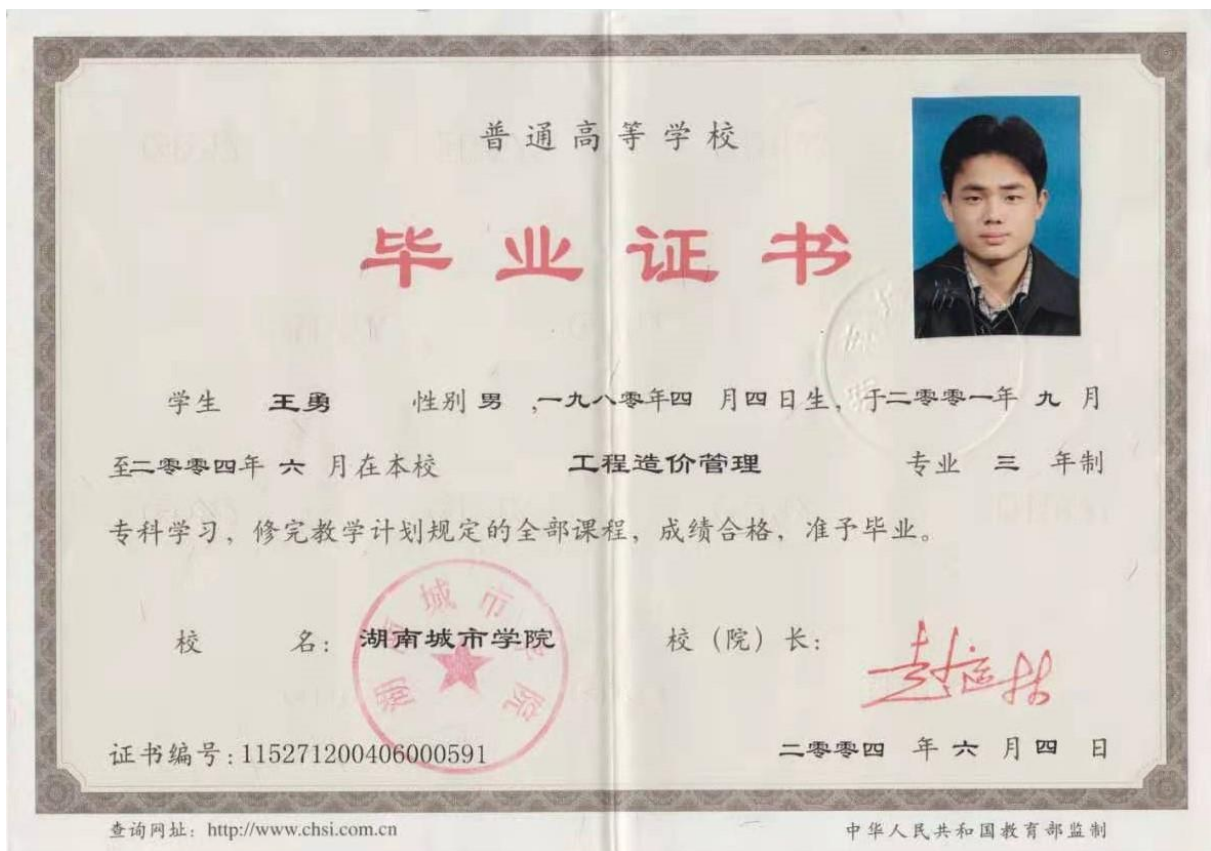 普通高等学校
毕业证书
学生 王勇 性别 男 ,一九八零年四 月四日生, 于二零零一年 九 月
至二零零四年 六 月在本校 工程造价管理 专业 三 年制
专科学习, 修完教学计划规定的全部课程, 成绩合格, 准予毕业。
校 名: 湖南城市学院 校 (院) 长: 赵运林
湖南城市学院
证书编号: 115271200406000591 二零零四 年 六 月 四 日
查询网址: http://www.chsi.com.cn 中华人民共和国教育部监制